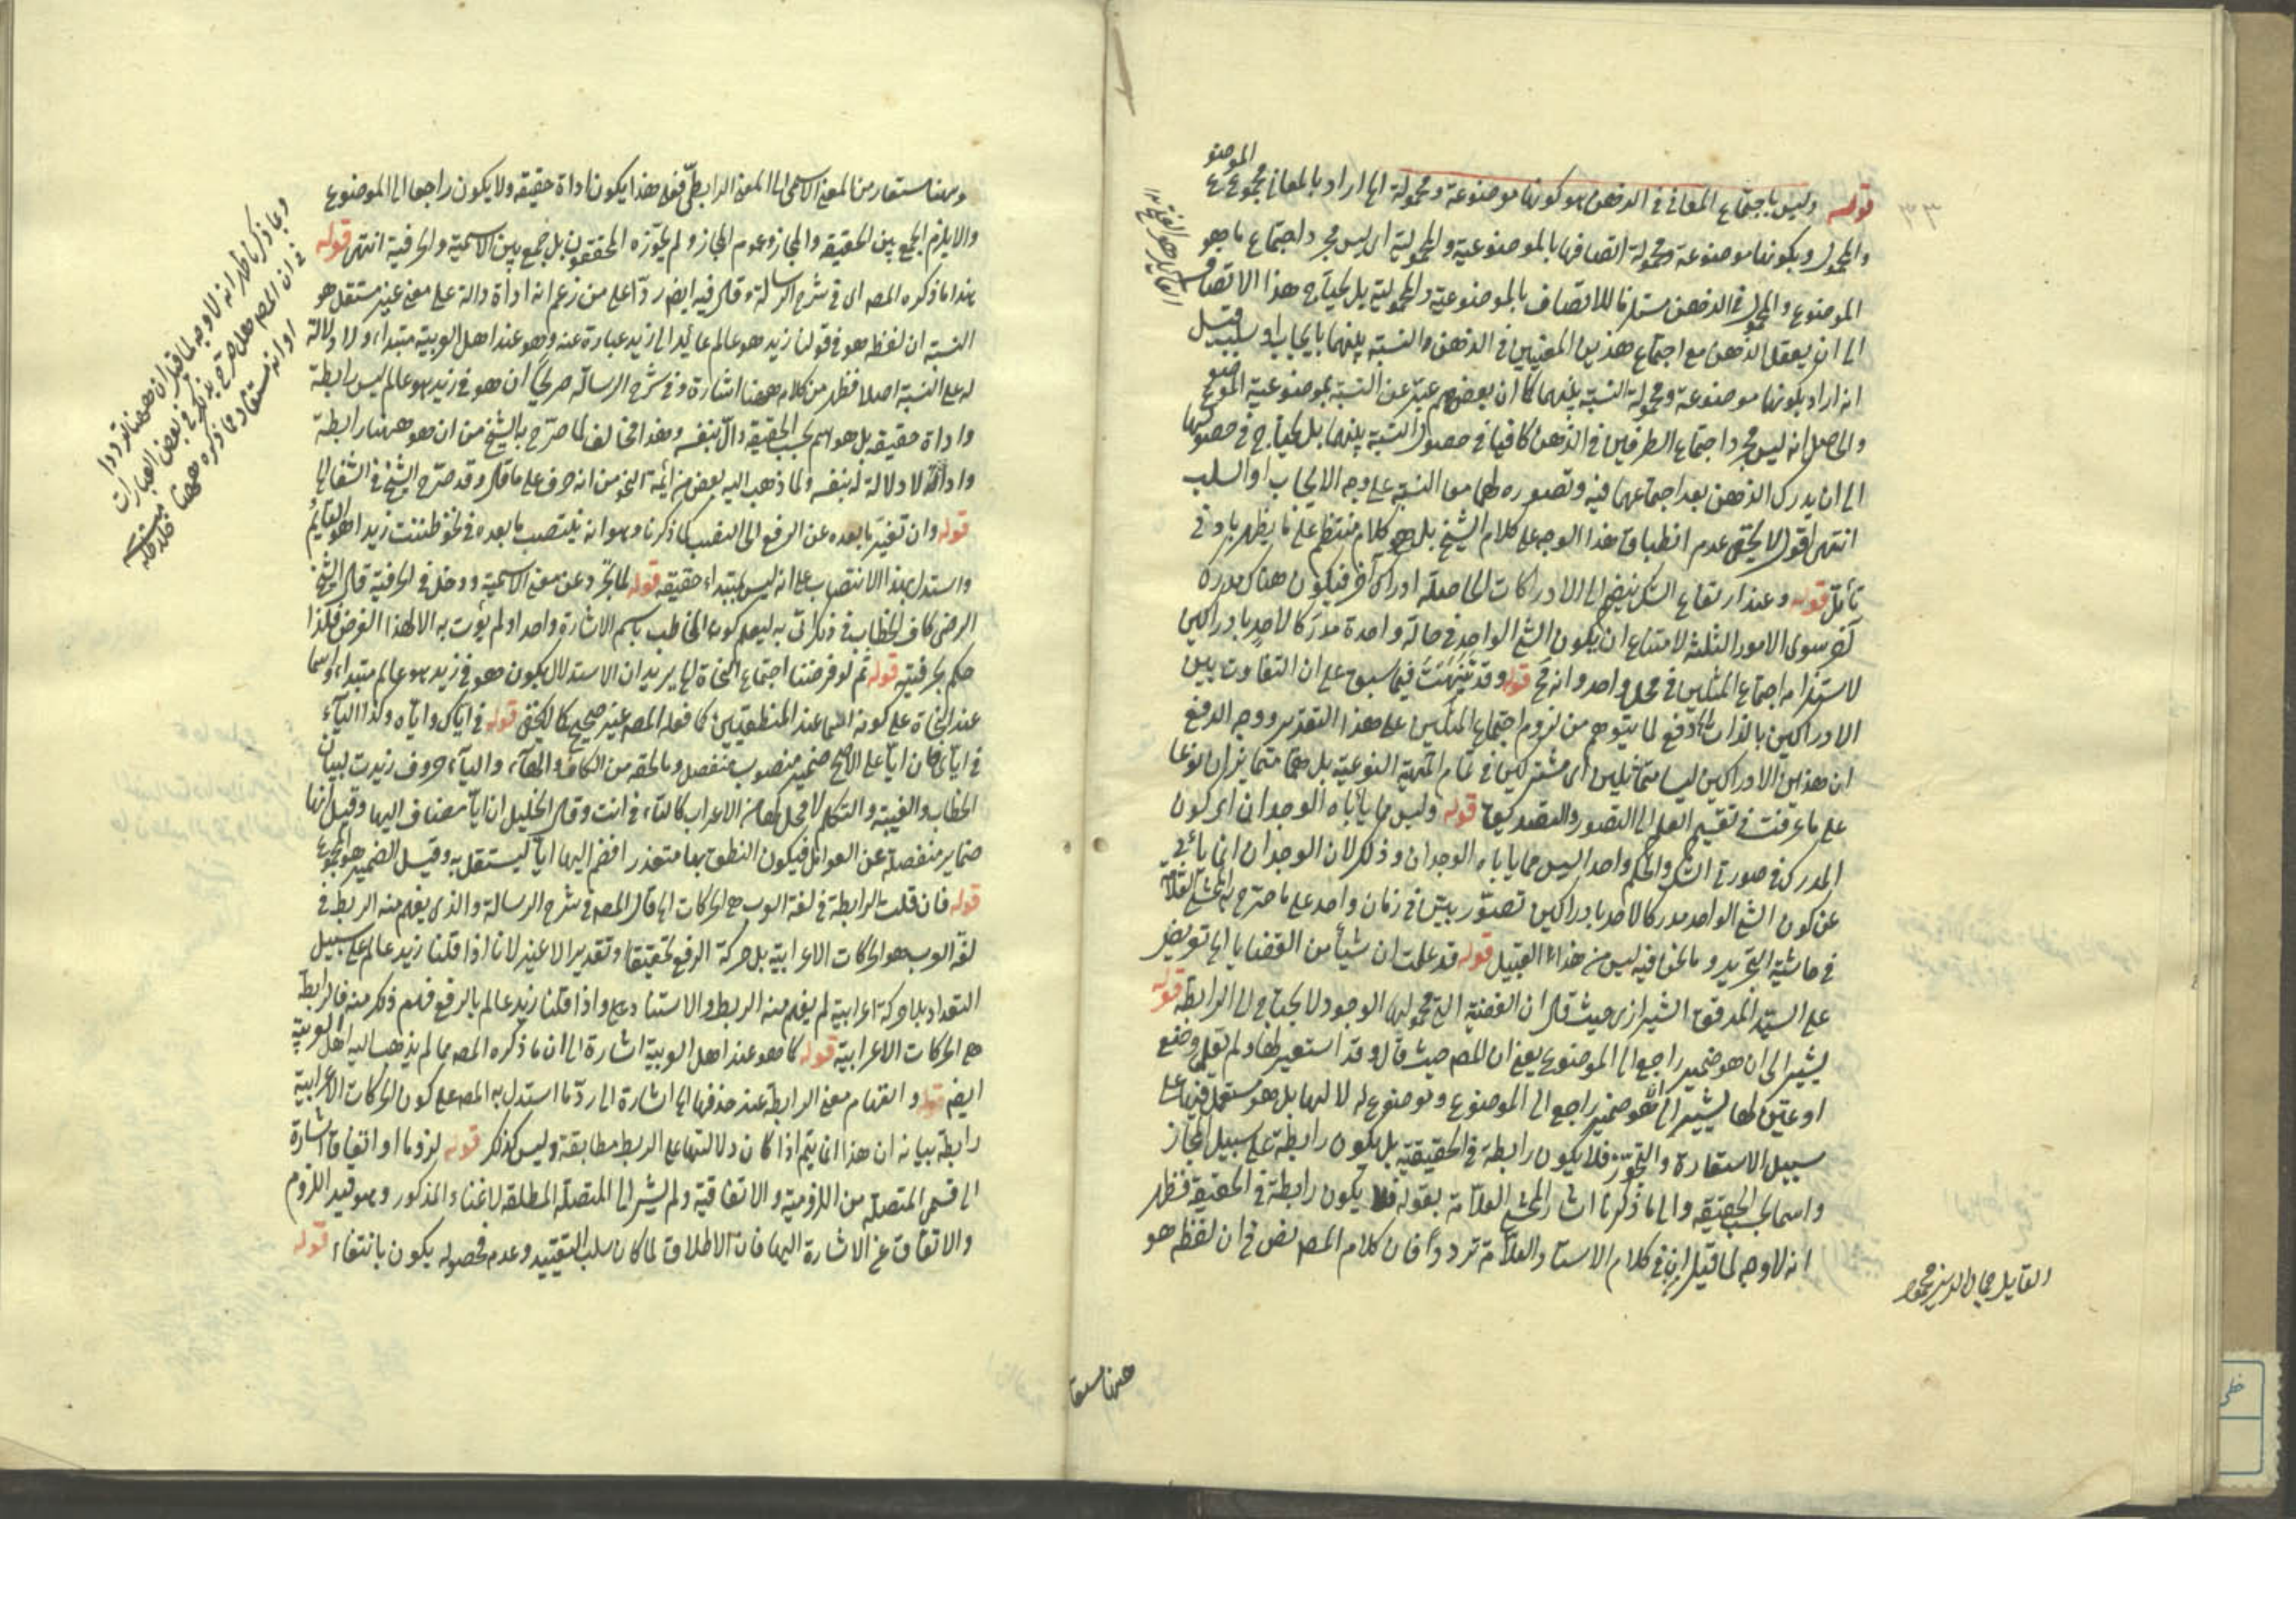 قوله وليس باجتماع المعاني في الذهن هو كونها موضوعة ومحمولة الخ اراد بالمعاني مجموع
الموضوع
والمحمول وبكونها موضوعة ومحمولة اتصافها بالموضوعية والمحمولية اى ليس مجرد اجتماع ما هو
الموضوع والمحمول في الذهن مستلزما للاتصاف بالموضوعية والمحمولية بل يحتاج هذا الاتصاف
الى ان يعقل الذهن مع اجتماع هذين المعنيين في الذهن والنسبة بينهما بايجاب او سلب قيل
انه اراد بكونها موضوعة ومحمولة النسبة بينهما كما ان بعضهم عبر عن النسبة بموضوعية الموضوع
والحاصل انه ليس مجرد اجتماع الطرفين في الذهن كافيا في حصول النسبة بينهما بل يحتاج في حصولها
الى ان يدرك الذهن بعد اجتماعهما فيه وتصوره لهما معا النسبة على وجه الايجاب او السلب
انتهى اقول لا يخفى عدم انطباق هذا الوجه على كلام الشيخ بل هو كلام منتظم على ما يظهر بادنى
تأمل قوله وعند ارتفاع الشك ينضم الى الادراكات الحاصلة ادراك آخر فيكون هناك مدرك
آخر سوى الامور الثلثة لامتناع ان يكون الشئ الواحد في حالة واحدة مدركا لاحد بادراكين
لاستلزامه اجتماع المثلين في محل واحد وانه مح قوله وقد نبهت فيما سبق على ان التفاوت بين
الادراكين بالذات الخ دفع لما يتوهم من لزوم اجتماع المثلين على هذا التقدير ووجه الدفع
ان هذين الادراكين ليسا متماثلين اى مشتركين في تمام المهية النوعية بل هما متمايزان نوعا
على ما عرفت في تقسيم العلم الى التصور والتصديق قوله وليس مما يأباه الوجدان اى كون
المدرك في صورتى الشك والحكم واحدا ليس مما ياباه الوجدان وذلك لان الوجدان انما يأبى
عن كون الشئ الواحد مدركا لاحد بادراكين تصوريين في زمان واحد على ما صرح به المحشى العلامة
في حاشية التجريد وما نحن فيه ليس من هذا القبيل قوله قد علمت ان شيأ من القضايا الخ تعريض
على السيد المدقق الشيرازى حيث قال ان القضية التى محمولها الوجود لا يحتاج الى الرابطة قوله
يشير الى ان هو ضمير راجع الى الموضوع يعنى ان المصـ حيث قال وقد استعير لها ولم يقل وضع
او عين لها يشير الى انه ضمير راجع الى الموضوع وموضوع له لا لها بل هو مستعمل فيها على
سبيل الاستعارة والتجوز فلا يكون رابطة في الحقيقة بل يكون رابطة على سبيل المجاز
واسما بحسب الحقيقة والى ما ذكرنا اشار المحشى العلامة بقوله فلا يكون رابطة في الحقيقة فظهر
انه لا وجه لما قيل ان في كلام الاستاد العلامة ترددا فان كلام المصـ نص في ان لفظه هو
القايل جمال الدين محمود
ههنا مستعا
وههنا مستعار من المعنى الاسمى الى المعنى الرابطى فعلى هذا يكون اداة حقيقة ولا يكون راجعا الى الموضوع
والا يلزم الجمع بين الحقيقة والمجاز وعموم المجاز ولم يجوزه المحققون بل جمع بين الاسمية والحرفية انتهى قوله
هذا ما ذكره المصـ اى في شرح الرسالة وقال فيه ايضا ردا على من زعم انه اداة دالة على معنى غير مستقل هو
النسبة ان لفظ هو في قولنا زيد هو عالم عائد الى زيد عبارة عنه وهو عند اهل العربية مبتداء ولا دلالة
له على النسبة اصلا فظهر من كلامه ههنا اشارة وفي شرح الرسالة صريحا ان هو في زيد هو عالم ليس رابطة
واداة حقيقة بل هو اسم بحسب الحقيقة دال بنفسه وهذا مخالف لما صرح به الشيخ من ان هو ههنا رابطة
واداة لا دلالة له بنفسه ولما ذهب اليه بعض من ائمة النحو من انه حرف على ما قال وقد صرح الشيخ في الشفا الخ
قوله وان تغير ما بعده عن الرفع الى النصب كما ذكرنا وهو انه ينتصب ما بعده في نحو ظننت زيدا هو القايم
واستدل بهذا الانتصاب على انه ليس مبتداء حقيقة قوله لما تجرد عن معنى الاسمية ودخل في الحرفية قال الشيخ
الرضى كاف الخطاب في ذلك اتى به ليعلم كون المخاطب باسم الاشارة واحدا ولم يؤت به الا لهذا الغرض فلذا
حكم بحرفيته قوله ثم لو فرضنا اجتماع النحاة الخ يريد ان الاستدلال بكون هو في زيد هو عالم مبتداء واسما
عند النحاة على كونه اسما عند المنطقيين كما فعله المصـ غير صحيح كما لا يخفى قوله في اياك واياه وكذا الياء
في اياى فان ايا على الاصح ضمير منصوب منفصل وما لحقه من الكاف والهاء والياء حروف زيدت لبيان
الخطاب والغيبة والتكلم لا محل لها من الاعراب كالتاء في انت وقال الخليل ان ايا مضاف اليها وقيل انها
ضماير منفصلة عن العوامل فيكون النطق بها متعذرا فضم اليها ايا ليستقل به وقيل الضمير هو المجموع
قوله فان قلت الرابطة في لغة العرب هى الحركات الخ قال المصـ في شرح الرسالة والذى يفهم منه الربط في
لغة العرب هو الحركات الاعرابية بل حركة الرفع تحقيقا وتقديرا لا غير لانا اذا قلنا زيد عالم على سبيل
التعداد بلا حركة اعرابية لم يفهم منه الربط والاسناد واذا قلنا زيد عالم بالرفع فهم ذلك منه فالرابطة
هى الحركات الاعرابية قوله كما هو عند اهل العربية اشارة الى ان ما ذكره المصـ مما لم يذهب اليه اهل العربية
ايضا قوله وانفهام معنى الرابطة عند حذفها الخ اشارة الى رد ما استدل به المصـ على كون الحركات الاعرابية
رابطة بيانه ان هذا انما يتم اذا كان دلالتها على الربط مطابقة وليس كذلك قوله لزوما او اتفاقا اشارة
الى قسمى المتصلة من اللزومية والاتفاقية ولم يشر الى المتصلة المطلقة لاغناء المذكور وهو قيد اللزوم
والاتفاق عن الاشارة اليها فان الاطلاق لما كان سلب التقييد وعدم حصوله يكون بانتفاء قوله
وبما ذكرنا ظهر انه لا وجه لما قيل ان ههنا ترددا
في ان المصـ هل صرح بذلك في بعض العبارات
او انه مستفاد مما ذكره ههنا